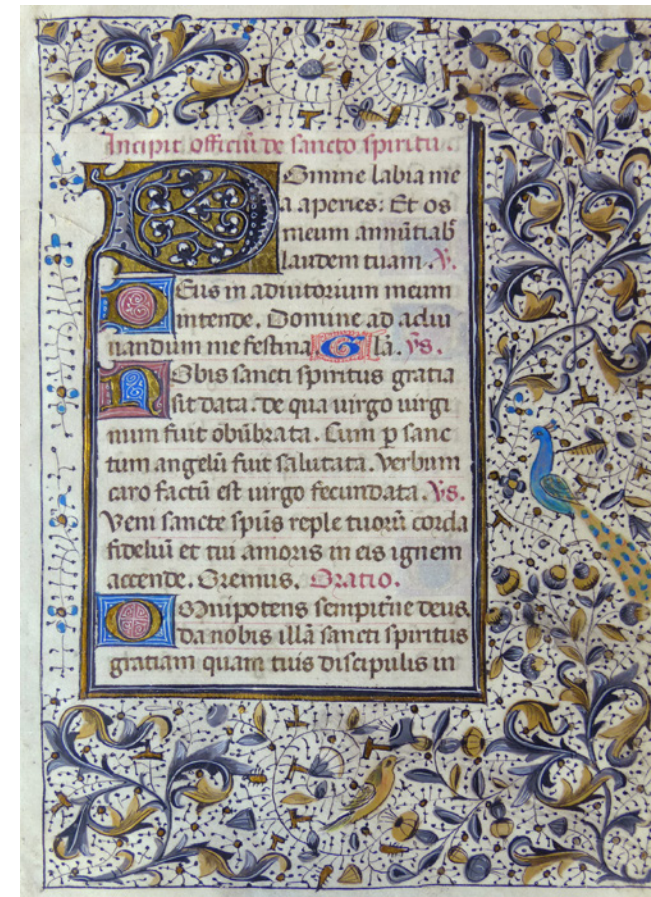 Incipit officiū de sancto spiritu
Domine labia me
a aperies: Et os
meum annūtiab̄
laudem tuam. V̄.
Deus in adiutorium meum
intende. Domine ad adiu
uandum me festina. Gla. v̄s.
Nobis sancti spiritus gratia
sit data. de qua uirgo uirgi
num fuit obūbrata. Cum p sanc
tum angelū fuit salutata. Verbum
caro factū est uirgo fecundata. v̄s.
Veni sancte sp̄us reple tuorū corda
fideliū et tui amoris in eis ignem
accende. Oremus. Oratio.
Omnipotens sempit̄ne deus.
da nobis illā sancti spiritus
gratiam quam tuis discipulis in